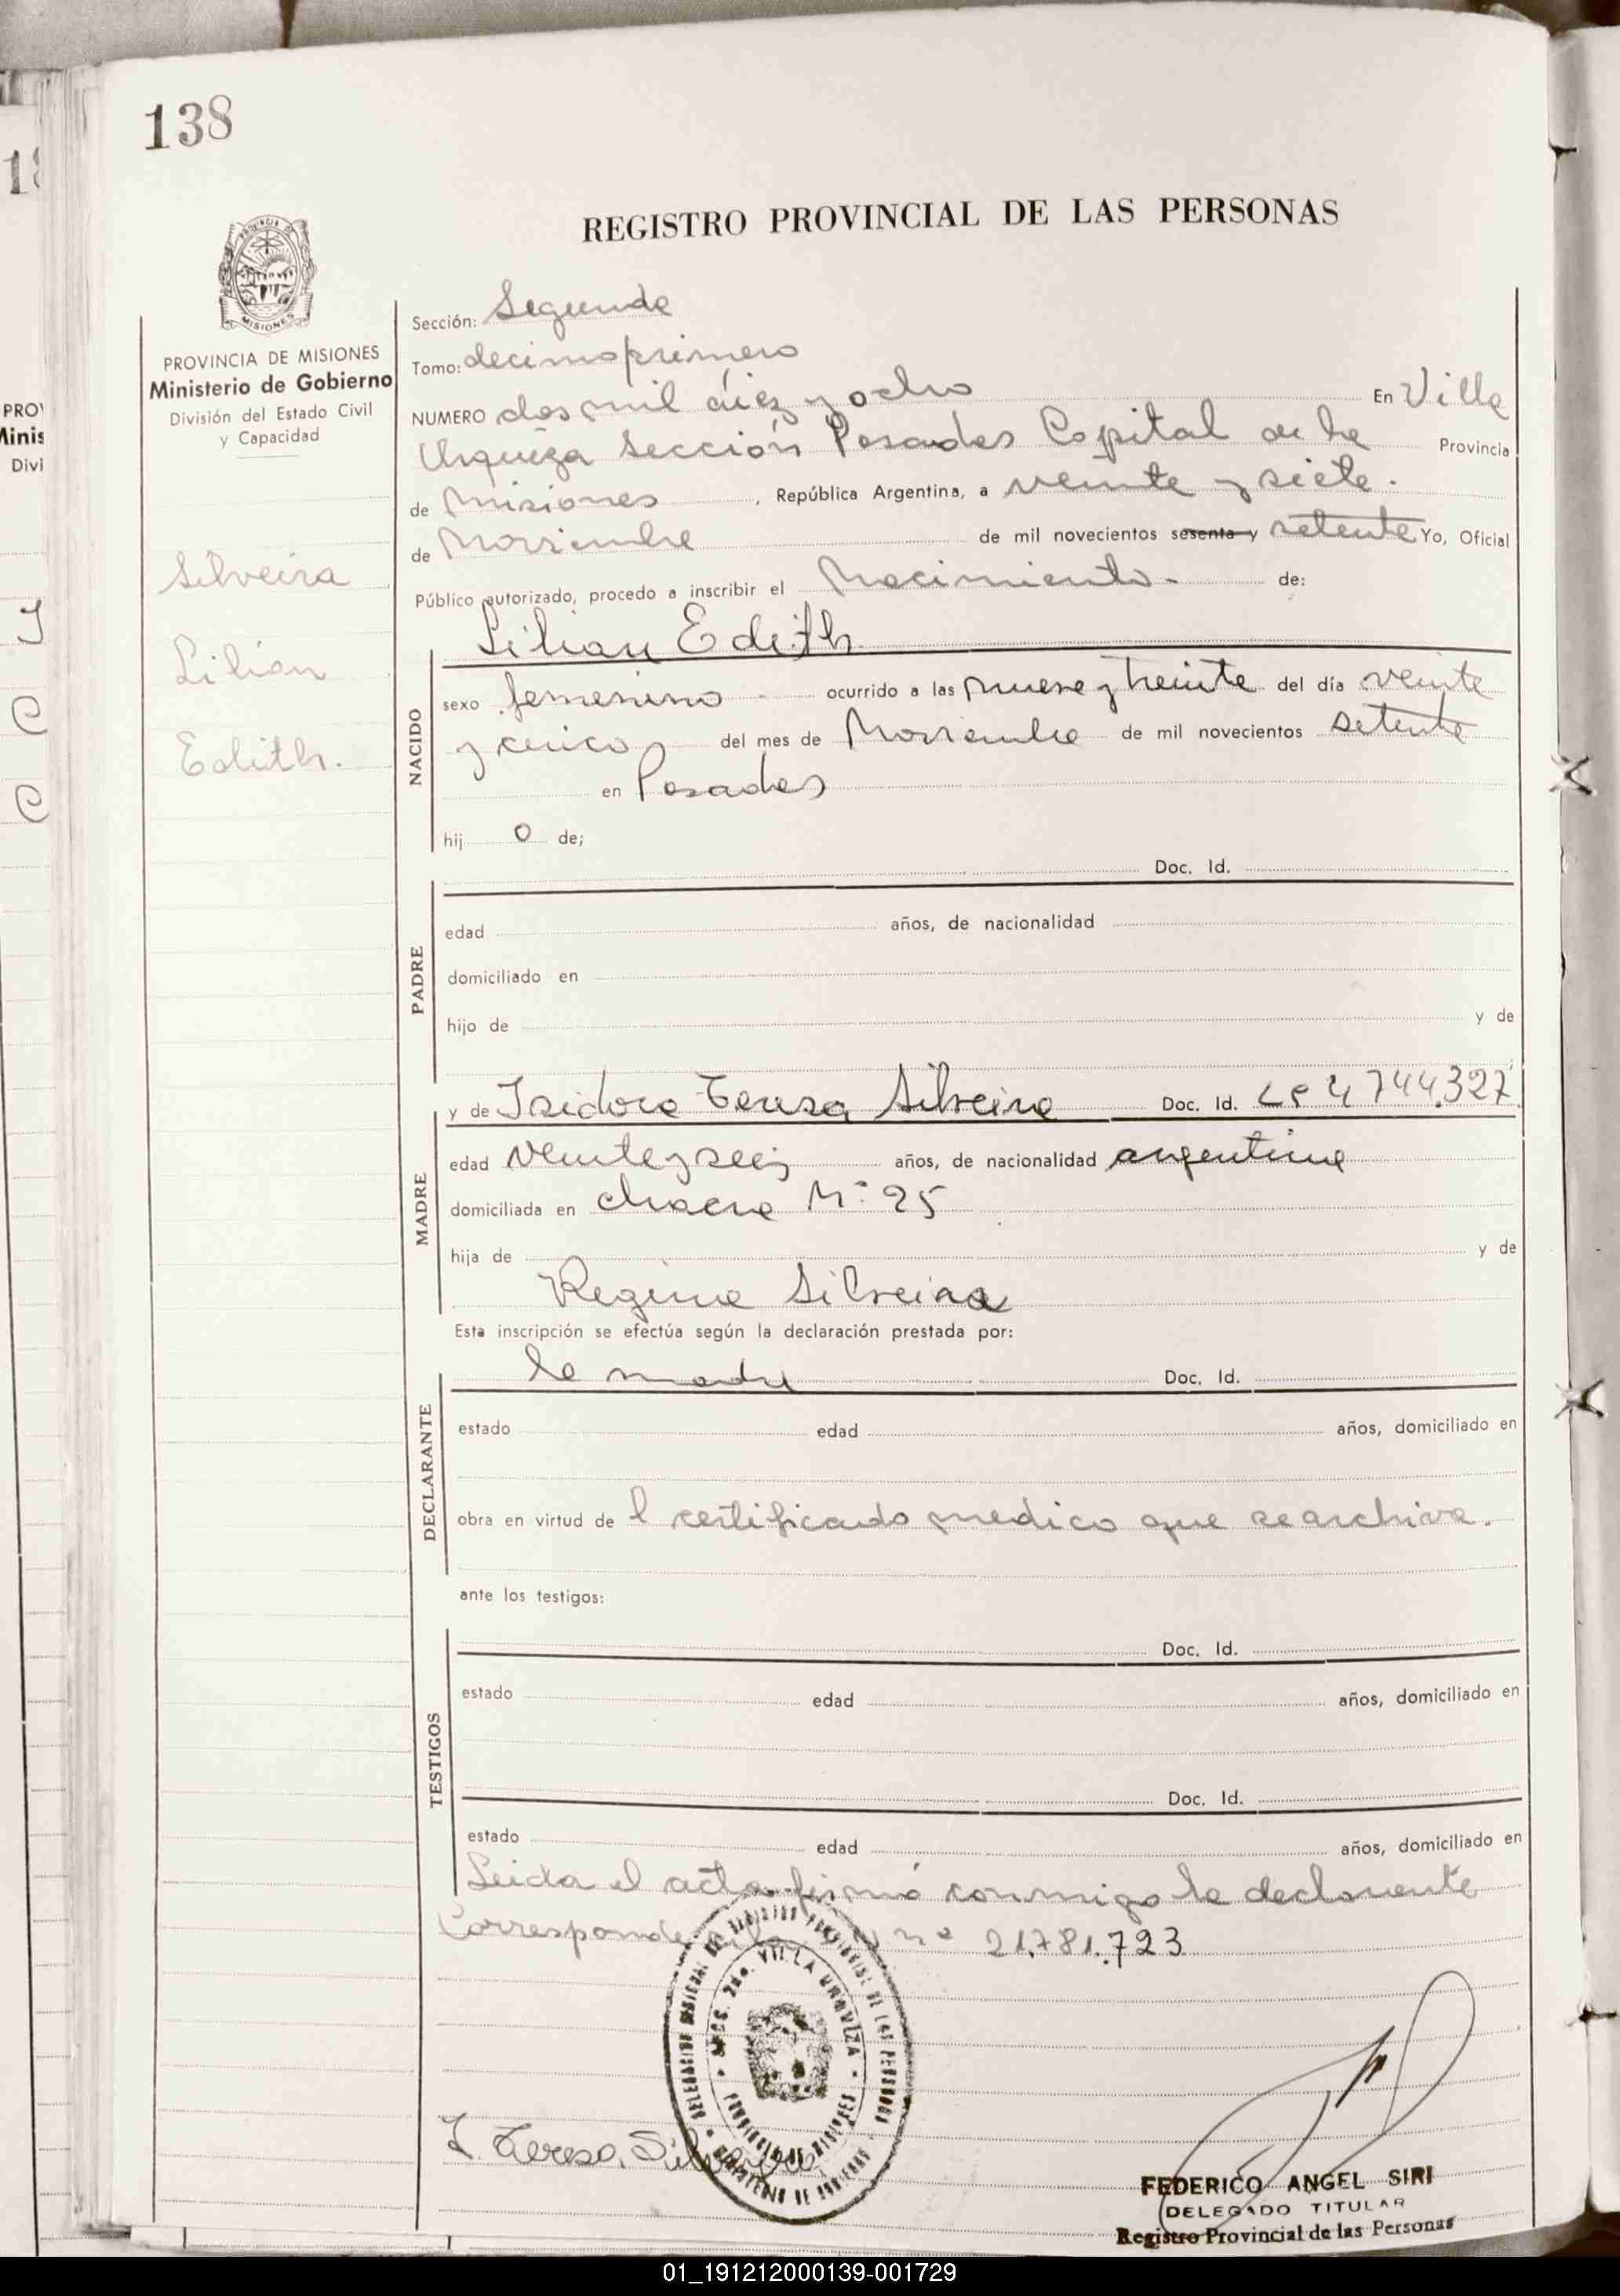 138
REGISTRO PROVINCIAL DE LAS PERSONAS
MISIONES
PROVINCIA DE MISIONES
Ministerio de Gobierno
División del Estado Civil
y Capacidad
Silveira
Lilian
Edith.
Sección: Segunda
Tomo: decimoprimero
NUMERO dos mil diez y ocho En Villa
Urquiza Sección Posadas Capital de la Provincia
de Misiones, República Argentina, a veinte y siete.
de Noviembre de mil novecientos sesenta y setenta Yo, Oficial
Público autorizado, procedo a inscribir el Nacimiento - de:
Lilian Edith
NACIDO
sexo femenino - ocurrido a las nueve y treinta del día veinte
y cinco del mes de Noviembre de mil novecientos setenta
en Posadas
hij o de;
Doc. Id.
PADRE
edad años, de nacionalidad
domiciliado en
hijo de y de
y de Isidora Teresa Silveira Doc. Id. LC 4744.327
MADRE
edad veinte y seis años, de nacionalidad argentina
domiciliada en chacra Nº 25
hija de y de
Regina Silveira
Esta inscripción se efectúa según la declaración prestada por:
la madre Doc. Id.
DECLARANTE
estado edad años, domiciliado en
obra en virtud de l certificado medico que se archiva.
ante los testigos:
Doc. Id.
TESTIGOS
estado edad años, domiciliado en
Doc. Id.
estado edad años, domiciliado en
Leida el acta firmó conmigo la declarante
Corresponde nº 21.781.723
VILLA URQUIZA
PROVINCIA DE MISIONES
I. Teresa Silveira
FEDERICO ANGEL SIRI
DELEGADO TITULAR
Registro Provincial de las Personas
01_191212000139-001729